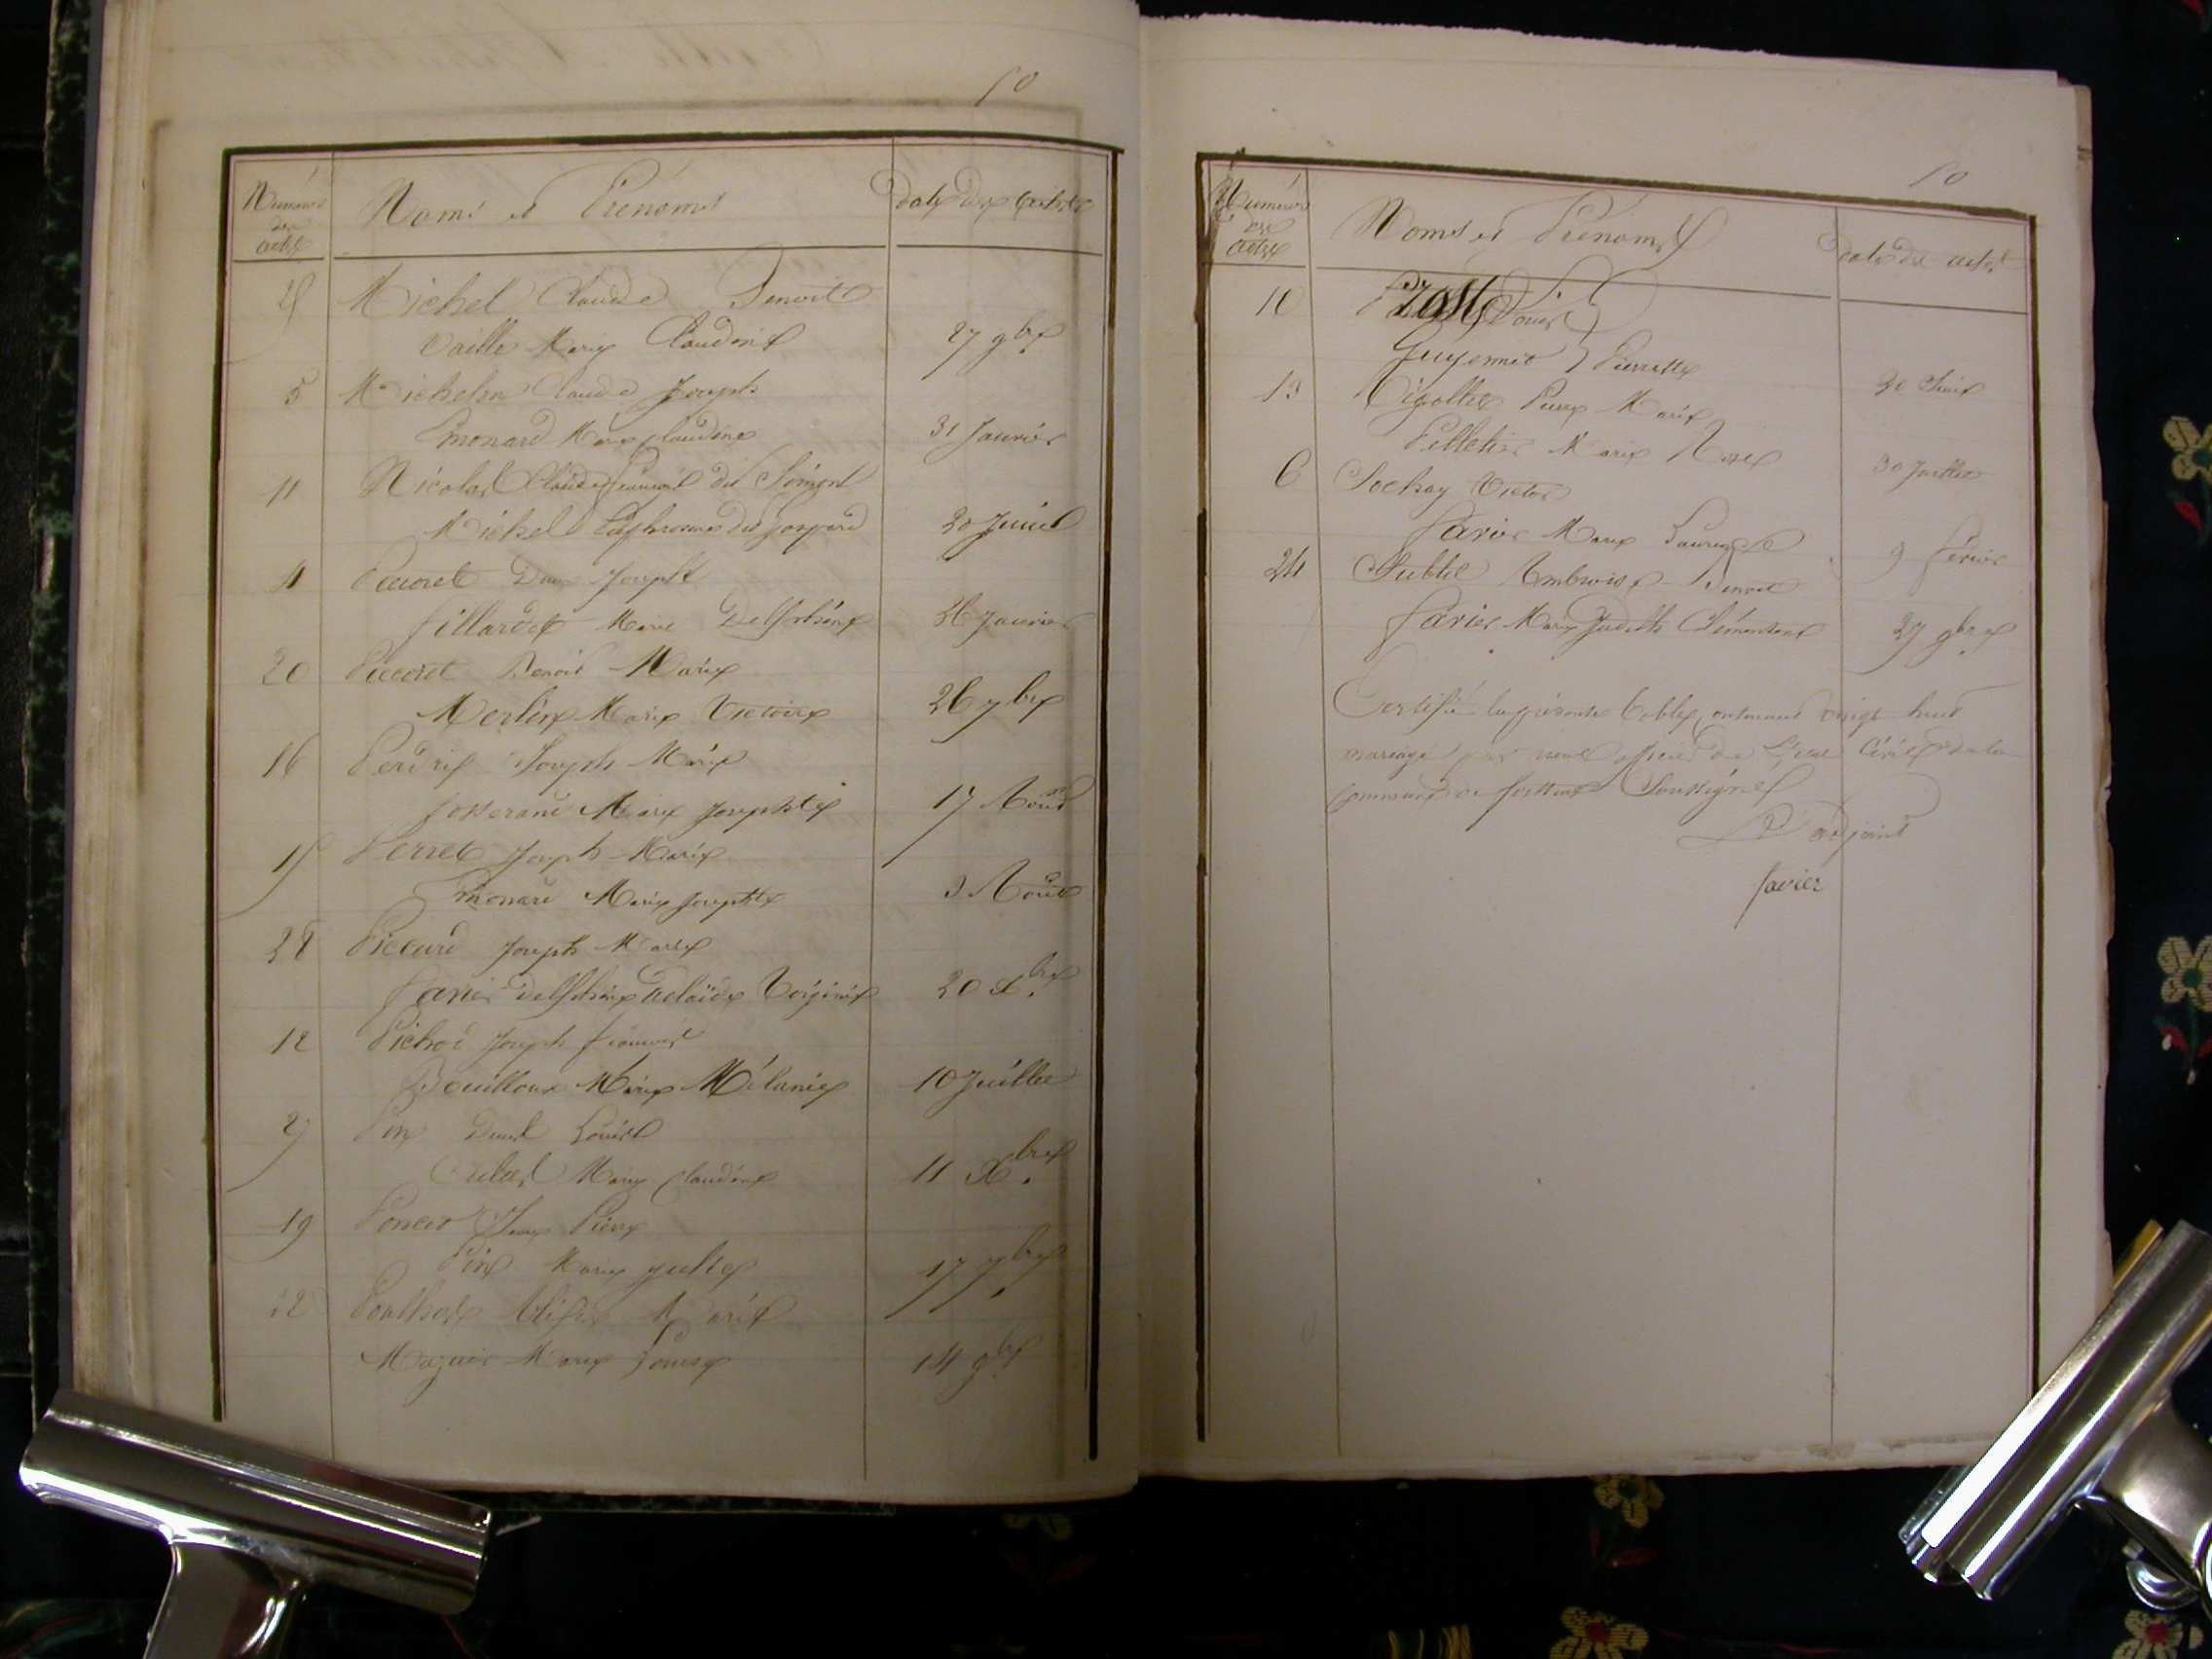 50
Numéros des actes
Noms et Prénoms
Date des actes
25 Michel Claude Benoit
Vaille Marie Claudine 27 9bre
5 Michelin Claude Joseph
Emonard Marie Claudine 31 Janvier
11 Nicolas Claude François dit Simon
Michel Euphrosine dit Gaspard 20 Juin
4 Paccoret Joseph
fillardet Marie Delphine 26 Janvier
20 Paccoret Benoit Marie
Merlin Marie Victoire 26 7bre
16 Perdrix Joseph Marie
Josserand Marie Josephte 17 Aout
15 Perret Joseph Marie
Emonard Marie Josephte 3 Aout
28 Piccard Joseph Marie
favier Delphine Adelaïde Virginie 20 Xbre
12 Pichod Joseph françois
Bouilloux Marie Mélanie 10 Juillet
27 Pin Denis Louis
Marie Claudine 11 Xbre
19 Poncet Jean Pierre
Pin Marie Julie 17 7bre
22 Marie
Marie Louise 14 9bre
50
Numéros des actes
Noms et Prénoms
Date des actes
10 Prost Louis
Guyennet Pierrette 20 Juin
13 Rigollet Pierre Marie
Pelletier Marie Rose 30 Juillet
6 Sochay Victor
favier Marie 9 février
24 Subtil Ambroise Benoit
favier Marie Judith Clémentine 27 9bre
Certifié la présente table contenant vingt huit
mariage par nous officier de l'Etat Civil de la
commune de Soussigné
L'adjoint
favier